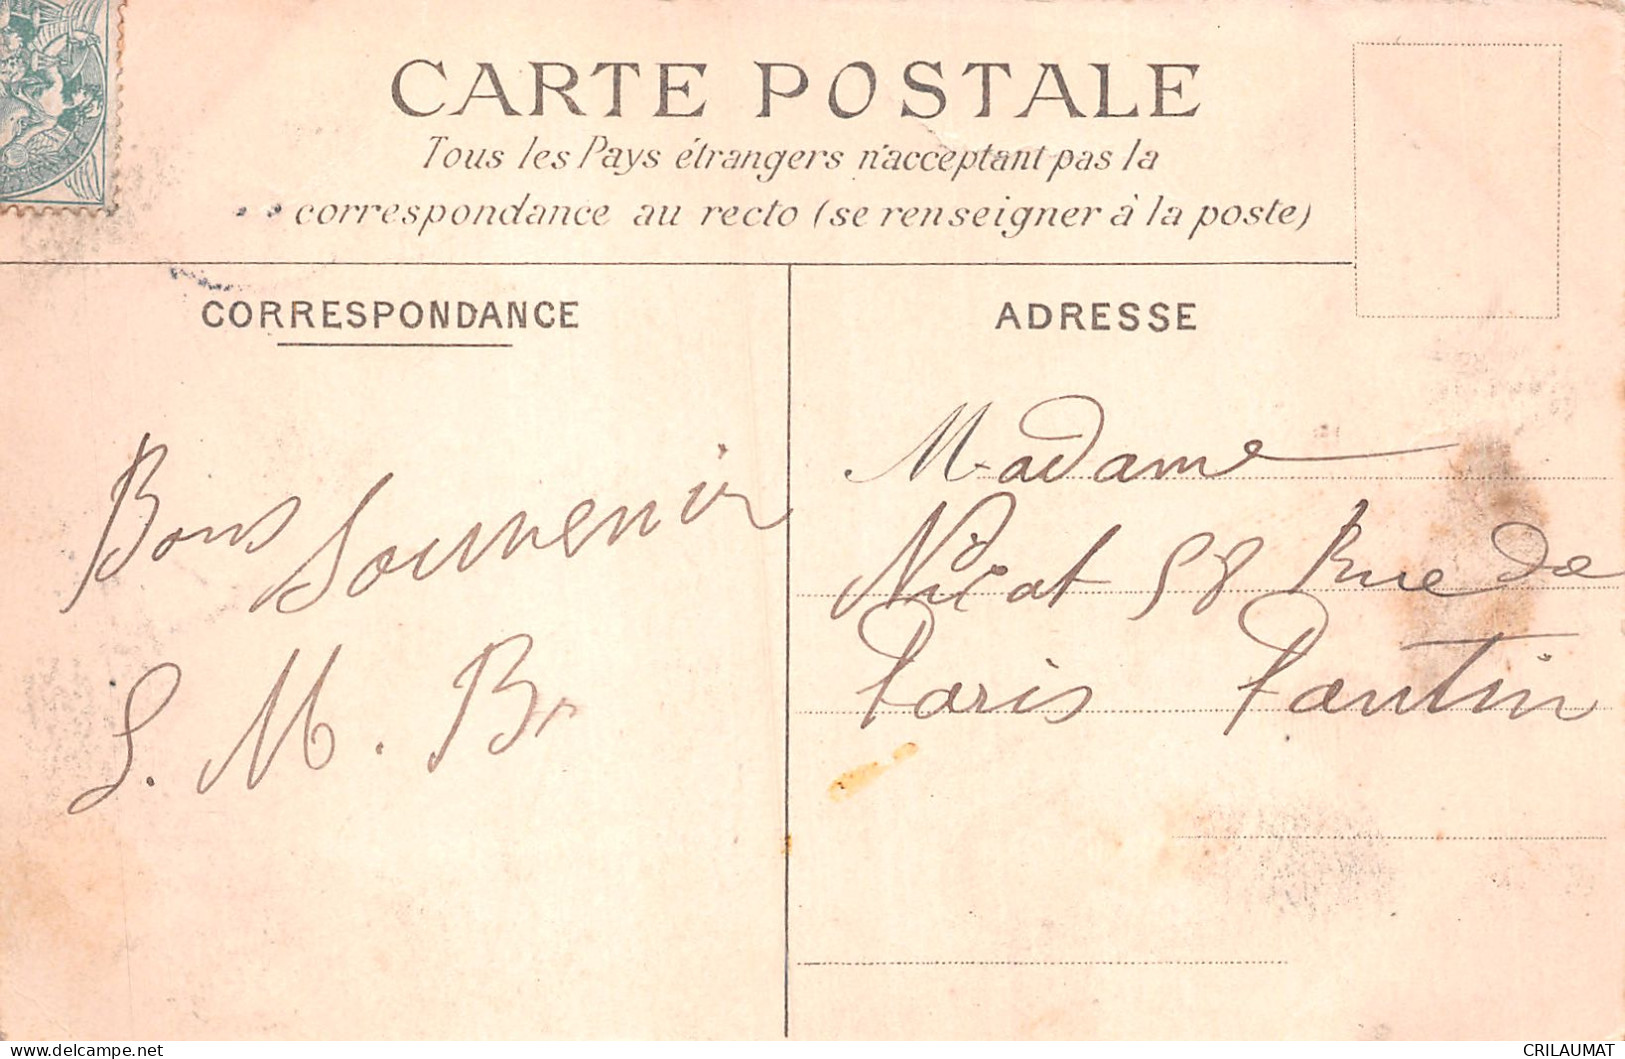 CARTE POSTALE
Tous les Pays étrangers n'acceptant pas la
correspondance au recto (se renseigner à la poste)
CORRESPONDANCE
ADRESSE
Bons Souvenir
S. M. Br
Madame
Nicot 58 Rue de
Paris Pantin
delcampe.net
CRILAUMAT